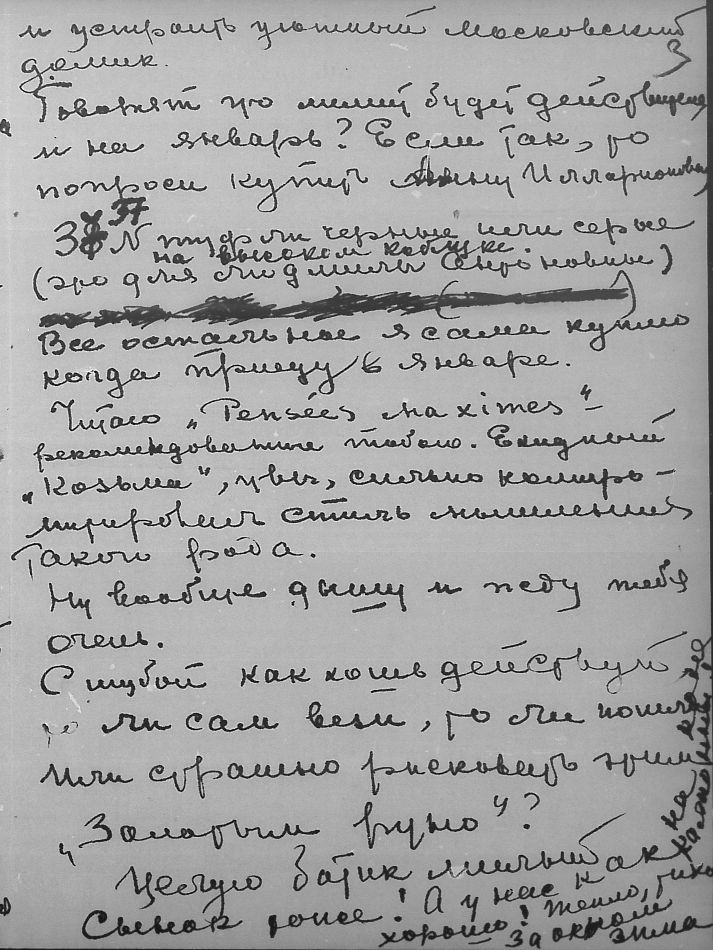 и устроить уютный московский
домик.
3
Говорят что лимит будет действителен
и на январь? Если так, то
попроси купить Анну Илларионовну
37
N туфли черные или серые
на высоком каблуке.
(это для Людмилы Антоновны)
Все остальное я сама куплю
когда приеду в январе.
Читаю „Pensées maximes“ –
рекомендованные тобою. Ехидный
„Козьма“, увы, сильно компро–
митировал стиль мышления
такого рода.
Ну вообще дышу и жду тебя
очень.
С шубой как хошь действуй
то ли сам вези, то ли пошли
Или страшно рисковать этим
„Золотым руно“?
Целую Котик милый
Сынок тоже! А у нас как
хорошо! Тепло, тихо
за окном
зима
на